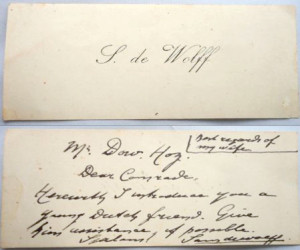 S. de Wolff
best regards of
my wife
Mr. Dov. Hoz.
Dear Comrade,
Herewith I introduce you a
young Dutch friend. Give
him assistance, if possible